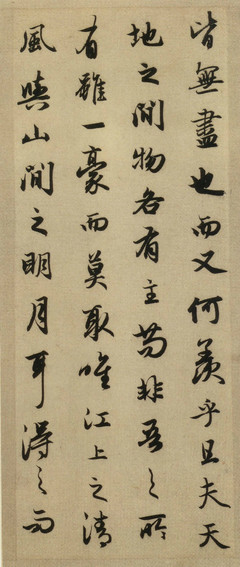 皆無盡也而又何羨乎且夫天
地之間物各有主茍非吾之所
有雖一豪而莫取唯江上之清
風與山間之明月耳得之而